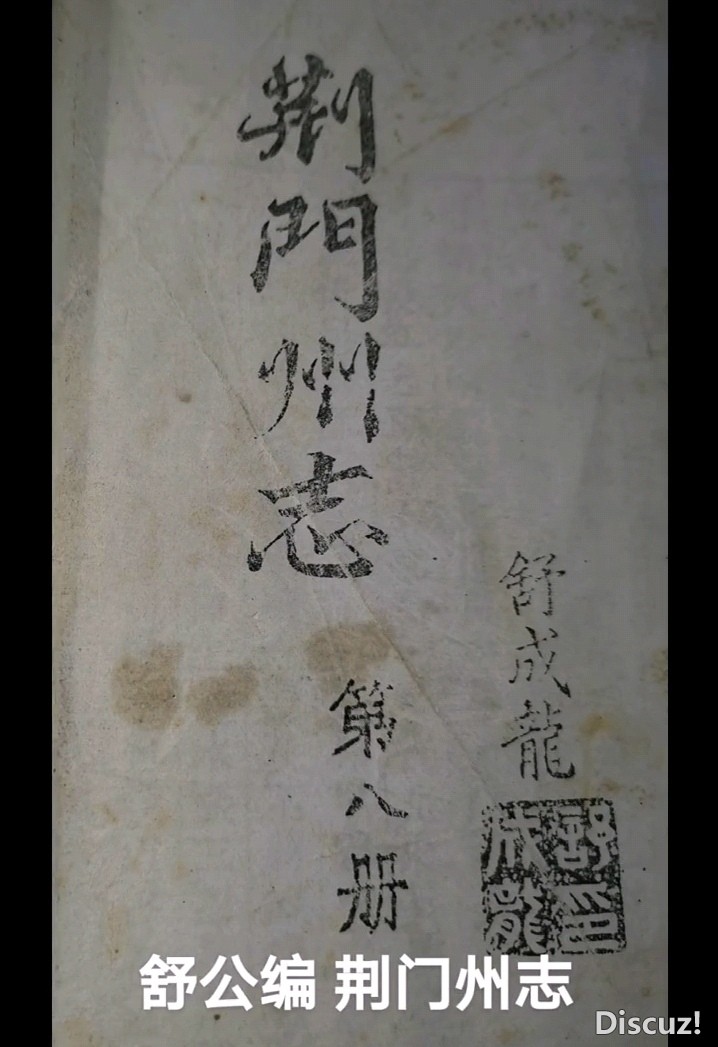 荆門州志
第八册
舒成龍
舒印成龍
舒公编 荆门州志
Discuz!